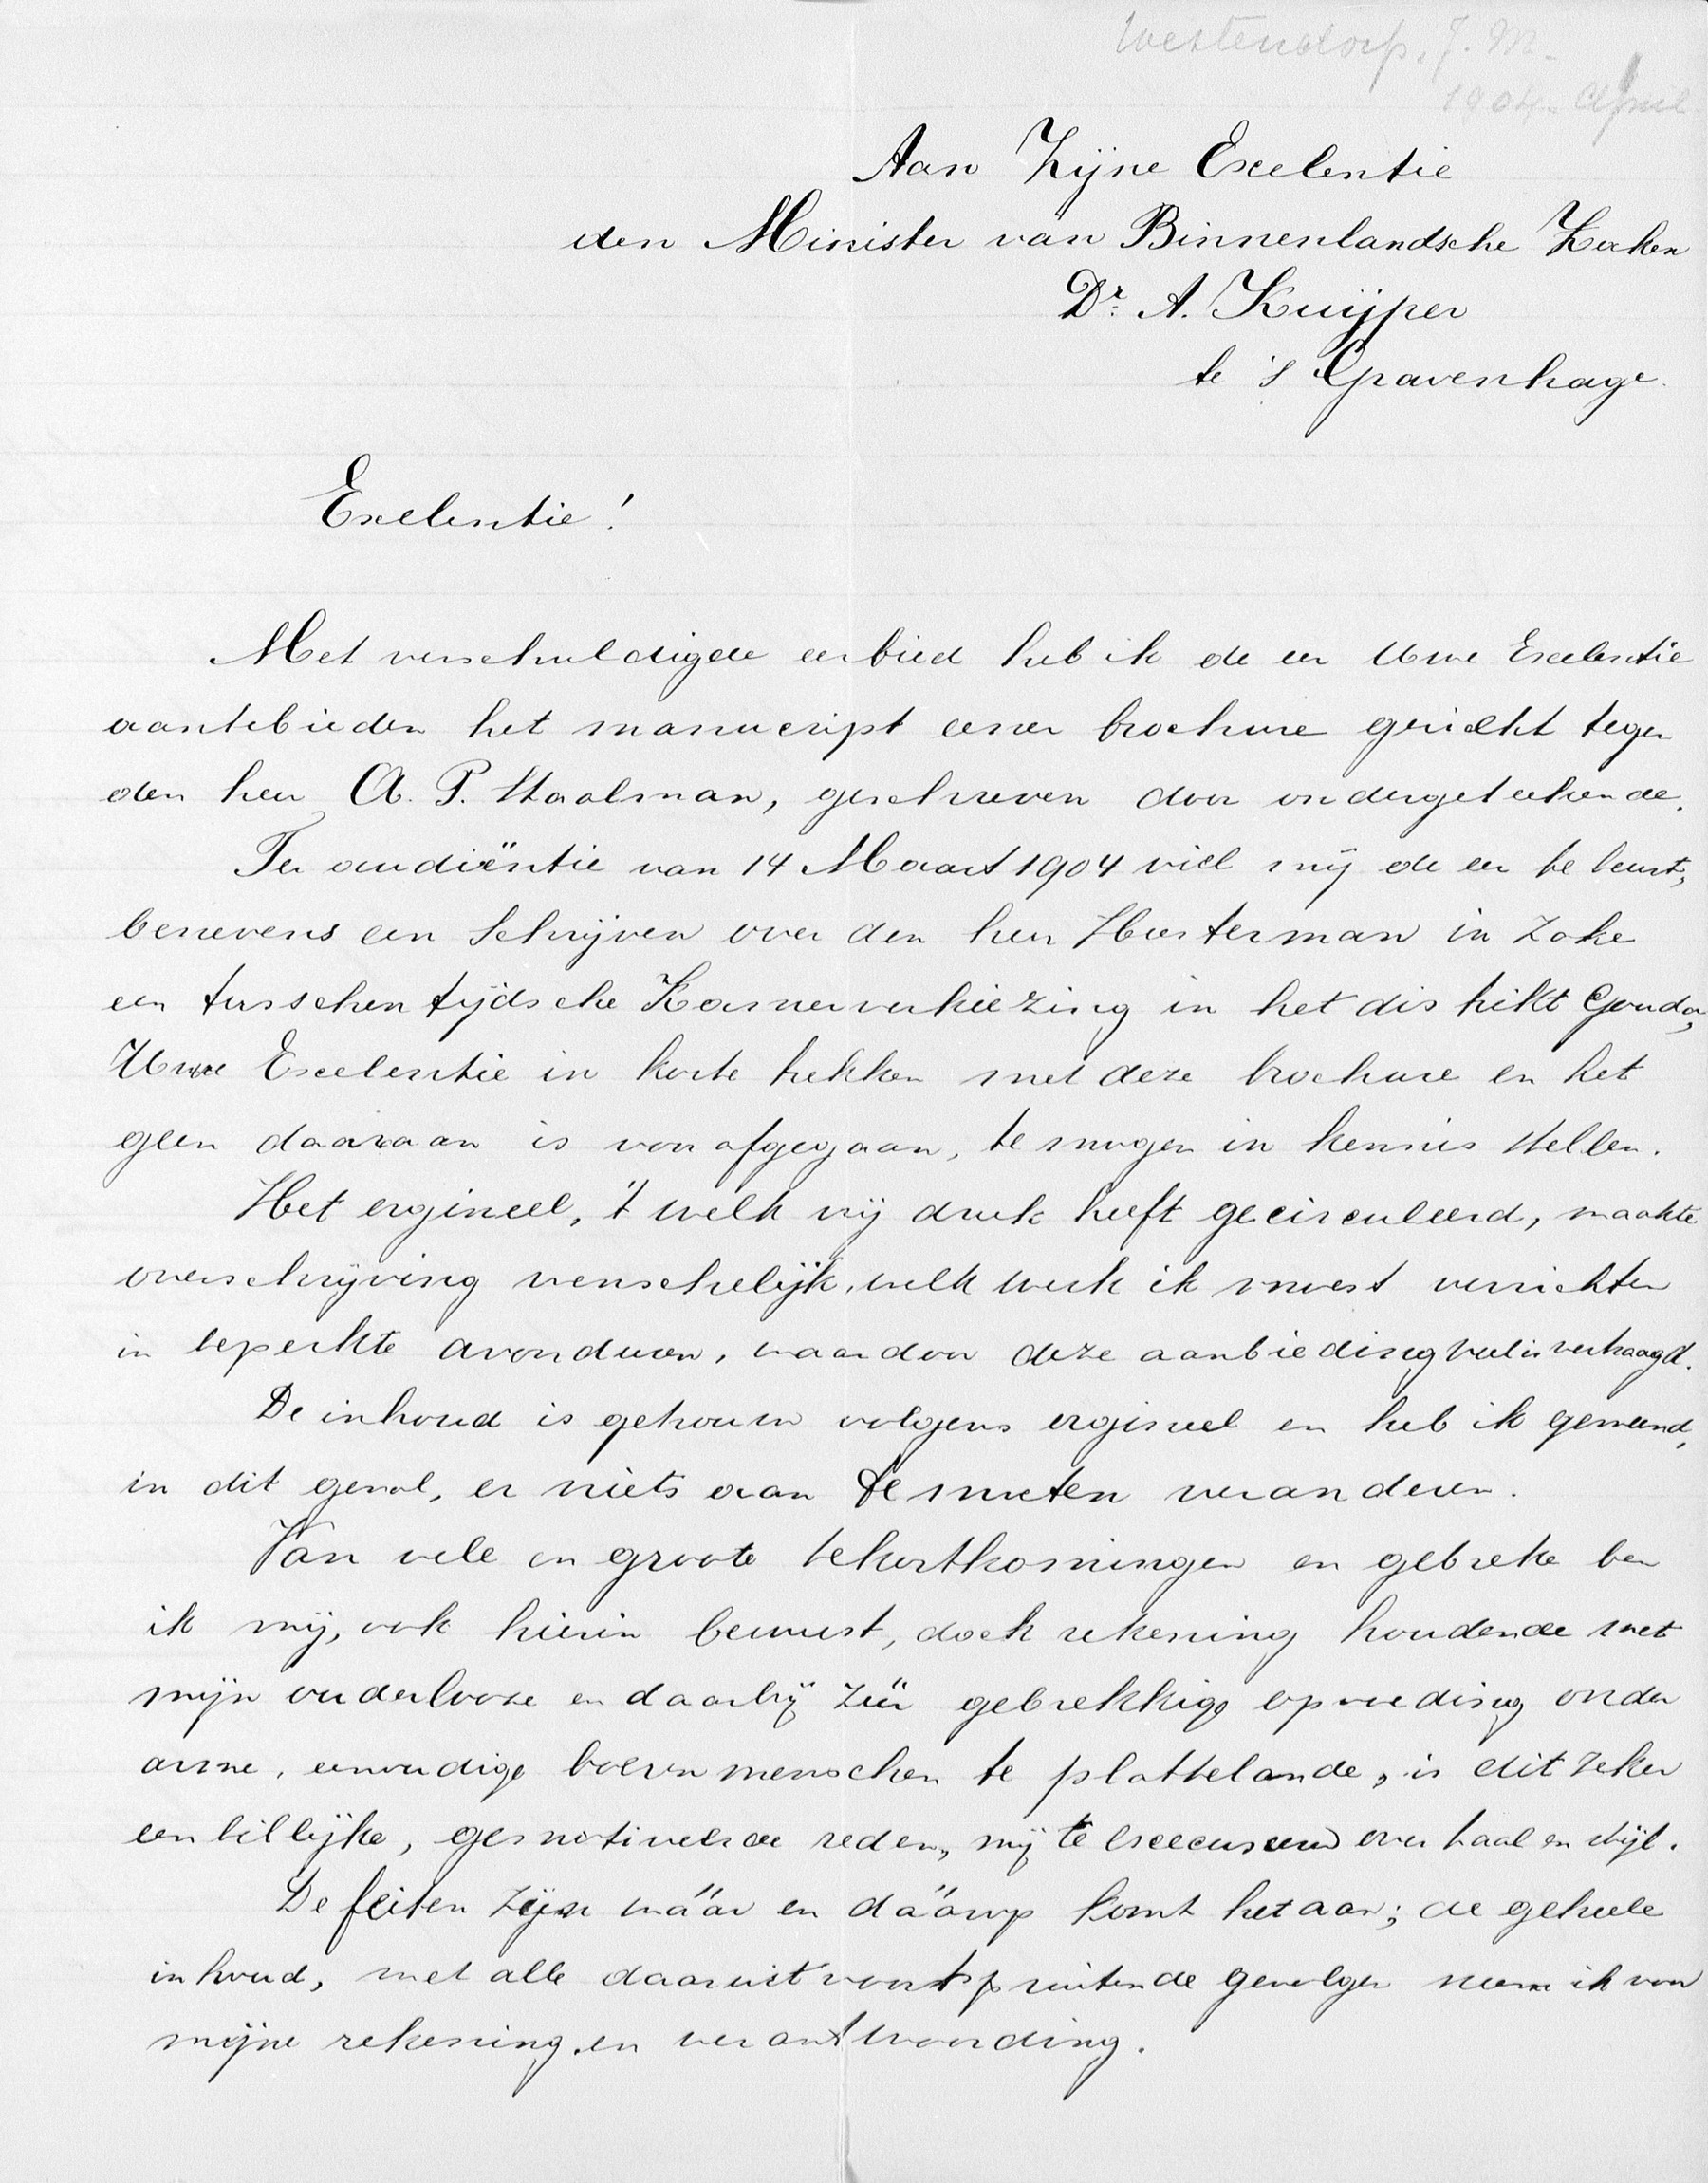 Westendorp, J. M.
1904. April
Aan Zijne Excelentie
den Minister van Binnenlandsche Zaken
Dr. A. Kuijper
te 's Gravenhage.
Excelentie!
Met verschuldigde eerbied heb ik de eer Uwe Excelentie
aantebieden het manucript eener brochure gericht tegen
den heer A. P. Staalman, geschreven door ondergeteekende.
Ter audiëntie van 14 Maart 1904 viel mij de eer te beurt,
benevens een schrijven over den heer in zake
een tusschentijdsche Kamerverkiezing in het distrikt Gouda,
Uwe Excelentie in korte trekken met deze brochure en het
geen daaraan is voorafgegaan, te mogen in kennis stellen.
Het orgineel, 't welk vrij druk heeft gecirculeerd, maakte
overschrijving wenschelijk, welk werk ik moest verrichten
in beperkte avonduren, waardoor deze aanbieding veel is vertraagd.
De inhoud is getrouw volgens orgineel en heb ik gemeend,
in dit geval, er niets aan te moeten veranderen.
Van vele en groote tekortkomingen en gebreke ben
ik mij, ook hierin bewust, doch rekening houdende met
mijn ouderlooze en daarbij zéér gebrekkige opvoeding onder
arme, eenvoudige boeren menschen te plattelande, is dit zeker
een billijke, gemotiveerde reden, mij te excuseeren over taal en stijl.
De feiten zijn wáár en dáárop komt het aan; de geheele
inhoud, met alle daaruit voortspruitende gevolgen neem ik voor
mijne rekening en verantwoording.